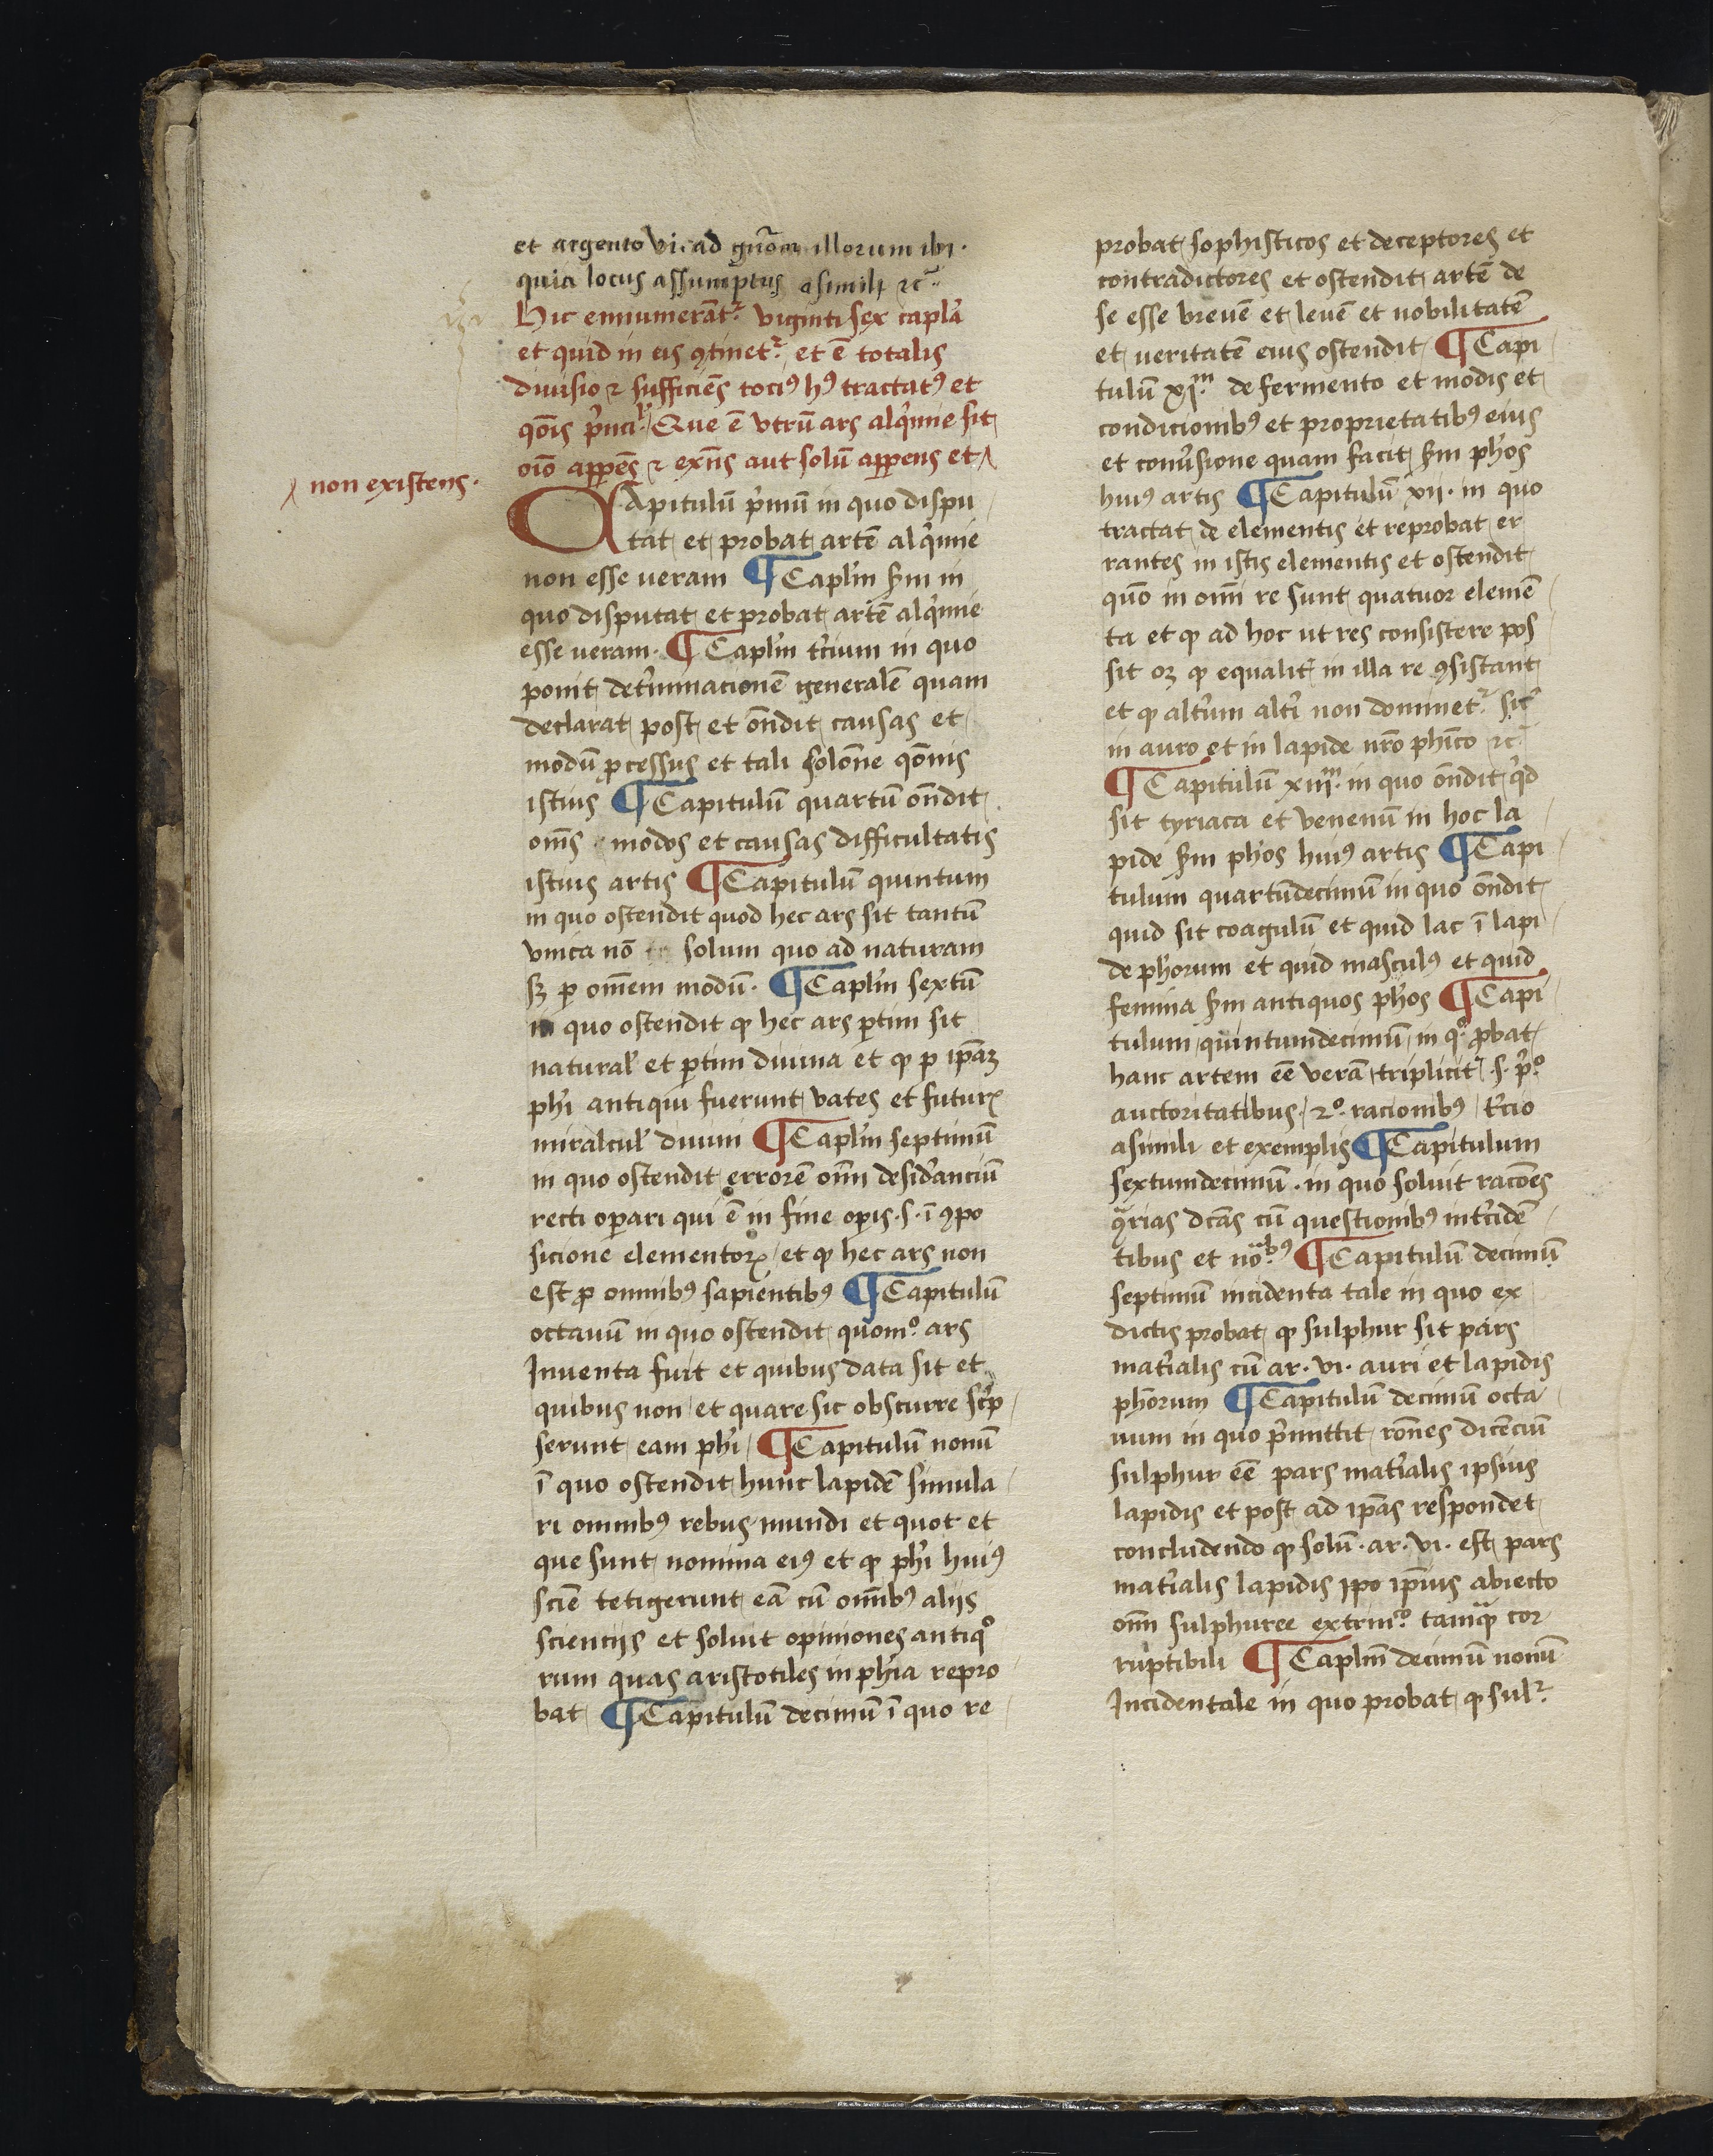 et argento vi. ad gñōem illorum ibi.
quia locus assumptus asimili ⁊c̃.
Hic enumerãt᷑ viginti sex capl̃a
et quid in eis ꝯtinet᷑ et ē totalis
diuisio ⁊ sufficiẽs tociꝰ hꝰ tractatꝰ et
qõis p̃nci.l̃. Que ē vtrũ ars alq̃mie sit
oĩo appẽs ⁊ exñs aut solũ apperens et
non existens.
Capitulũ p̃mũ in quo dispu
tat et probat artẽ alq̃mie
non esse ueram ¶ Capl̃m sc̃dm in
quo disputat et probat artẽ alq̃mie
esse ueram. ¶ Capl̃m tc̃ium in quo
ponit det̃minacionẽ generalẽ quam
declarat post et oñdit causas et
modũ ꝓcessus et tali solõne qõnis
istius ¶ Capitulũ quartũ oñdit
om̃s modos et causas difficultatis
istius artis ¶ Capitulũ quintum
in quo ostendit quod hec ars sit tantũ
vnica nõ solum quo ad naturam
sꝫ ꝑ om̃em modũ. ¶ Capl̃m sextũ
in quo ostendit ꝙ hec ars ꝑtim sit
natural̃ et ꝑtim diuina et ꝙ ꝑ ip̃aꝫ
phĩ antiqui fuerunt vates et futurꝝ
miralcul̃ diuini ¶ Capl̃m septimũ
in quo ostendit errorẽ om̃i desid̃anciũ
recti oꝑari qui ē in fine oꝑis .s. ī ꝯpo
sicione elementoꝝ et ꝙ hec ars non
est ꝓ omnibꝰ sapientibꝰ ¶ Capitulũ
octauũ in quo ostendit quomº. ars
Inuenta fuit et quibus data sit et
quibus non et quare sic obscurre sc̃p
serunt eam phĩ ¶ Capitulũ nonũ
ī quo ostendit hunc lapidẽ simula
ri omnibꝰ rebus mundi et quot et
que sunt nomina eiꝰ et ꝙ phĩ huiꝰ
sciẽ tetigerunt eã cũ om̃ibꝰ aliis
scienciis et soluit opiniones antiqº
rum quas aristotiles in phĩa repro
bat ¶ Capitulũ decimũ ī quo re
probat sophisticos et deceptores et
contradictores et ostendit artẽ de
se esse breuẽ et leuẽ et nobilitatẽ
et ueritatẽ eius ostendit ¶ Capi
tulũ xj.m de fermento et modis et
condicionibꝰ et proprietatibꝰ eius
et conũsione quam facit sc̃dm phõs
huiꝰ artis ¶ Capitulũ xii. in quo
tractat de elementis et reprobat er
rantes in istis elementis et ostendit
quõ in om̃i re sunt quatuor elemẽ
ta et ꝙ ad hoc ut res consistere pos
sit oꝫ ꝙ equalit̃ in illa re ꝯsistant
et ꝙ alt̃um alt̃i non dominet᷑ sic̃
in auro et in lapide nr̃o phĩco ⁊c
¶ Capitulũ xiij.m in quo oñdit q̃d
sit tyriaca et venenũ in hoc la
pide sc̃dm phõs huiꝰ artis ¶ Capi
tulum quartũdecimũ in quo oñdit
quid sit coagulũ et quid lac ī lapi
de phõrum et quid masculꝰ et quid
femina sc̃dm antiquos phõs ¶ Capi
tulum quintumdecimũ in qº. ꝓbat
hanc artem eẽ verã tripliciť .s. p̃º.
auctoritatibus. 2º. racionibꝰ t̃cio
asimili et exemplis ¶ Capitulum
sextumdecimũ. in quo soluit racões
ꝯ̃rias dc̃as cũ questionibꝰ int̃cidẽ
tibus et noᵃbꝰ ¶ Capitulũ decimũ
septimũ incidenta tale in quo ex
dictis probat ꝙ sulphur sit pars
mat̃ialis cũ ar. vi. auri et lapidis
phõrum ¶ Capitulũ decimũ octa
uum in quo p̃mittit rõnes dicẽciũ
sulphur eẽ pars mat̃ialis ipsius
lapidis et post ad ip̃as respondet
concludendo ꝙ solũ. ar. vi. est pars
mat̃ialis lapidis ipo ip̃ius abiecto
om̃i sulphuree extrinº. tamqᵃ cor
ruptibili ¶ Capl̃m decimũ nonũ
Incidentale in quo probat ꝙ sulᷣ.